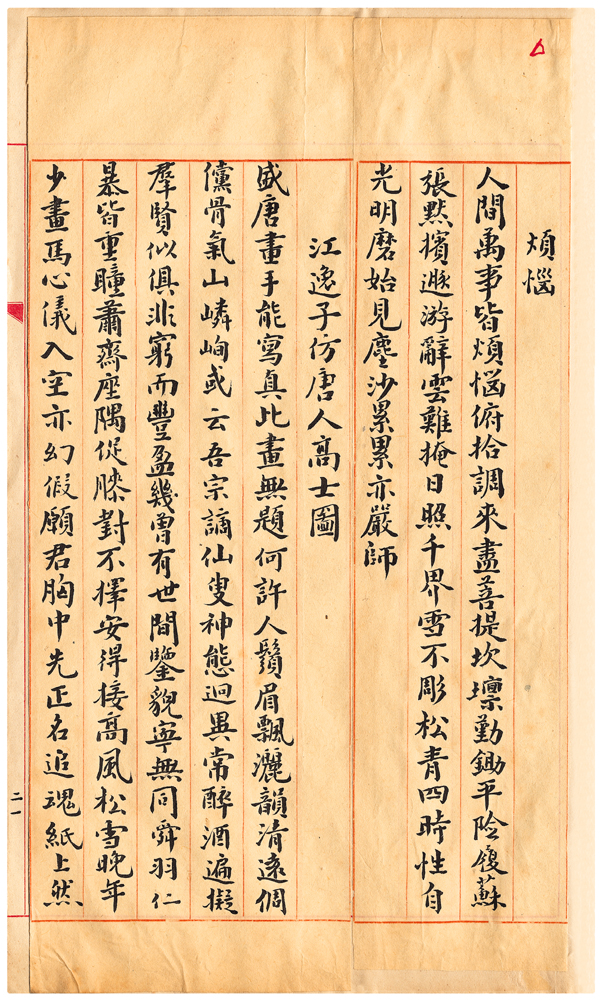 煩惱
人間萬事皆煩惱俯拾調來盡菩提坎壈勤鋤平險履蘇
張默擯遯游辭雲難掩日照千界雪不彫松青四時性自
光明磨始見塵沙累累亦嚴師
江逸子仿唐人高士圖
盛唐畫手能寫真此畫無題何許人鬚眉飄灑韻清遠倜
儻骨氣山嶙峋或云吾宗謫仙叟神態迥異常醉酒遍擬
羣賢似俱非窮而豐盈幾曾有世間鑒貌寧無同舜羽仁
暴皆重瞳蕭齋座隅促膝對不擇安得接高風松雪晚年
少畫馬心儀入空亦幻假願君胸中先正名追魂紙上然
二一